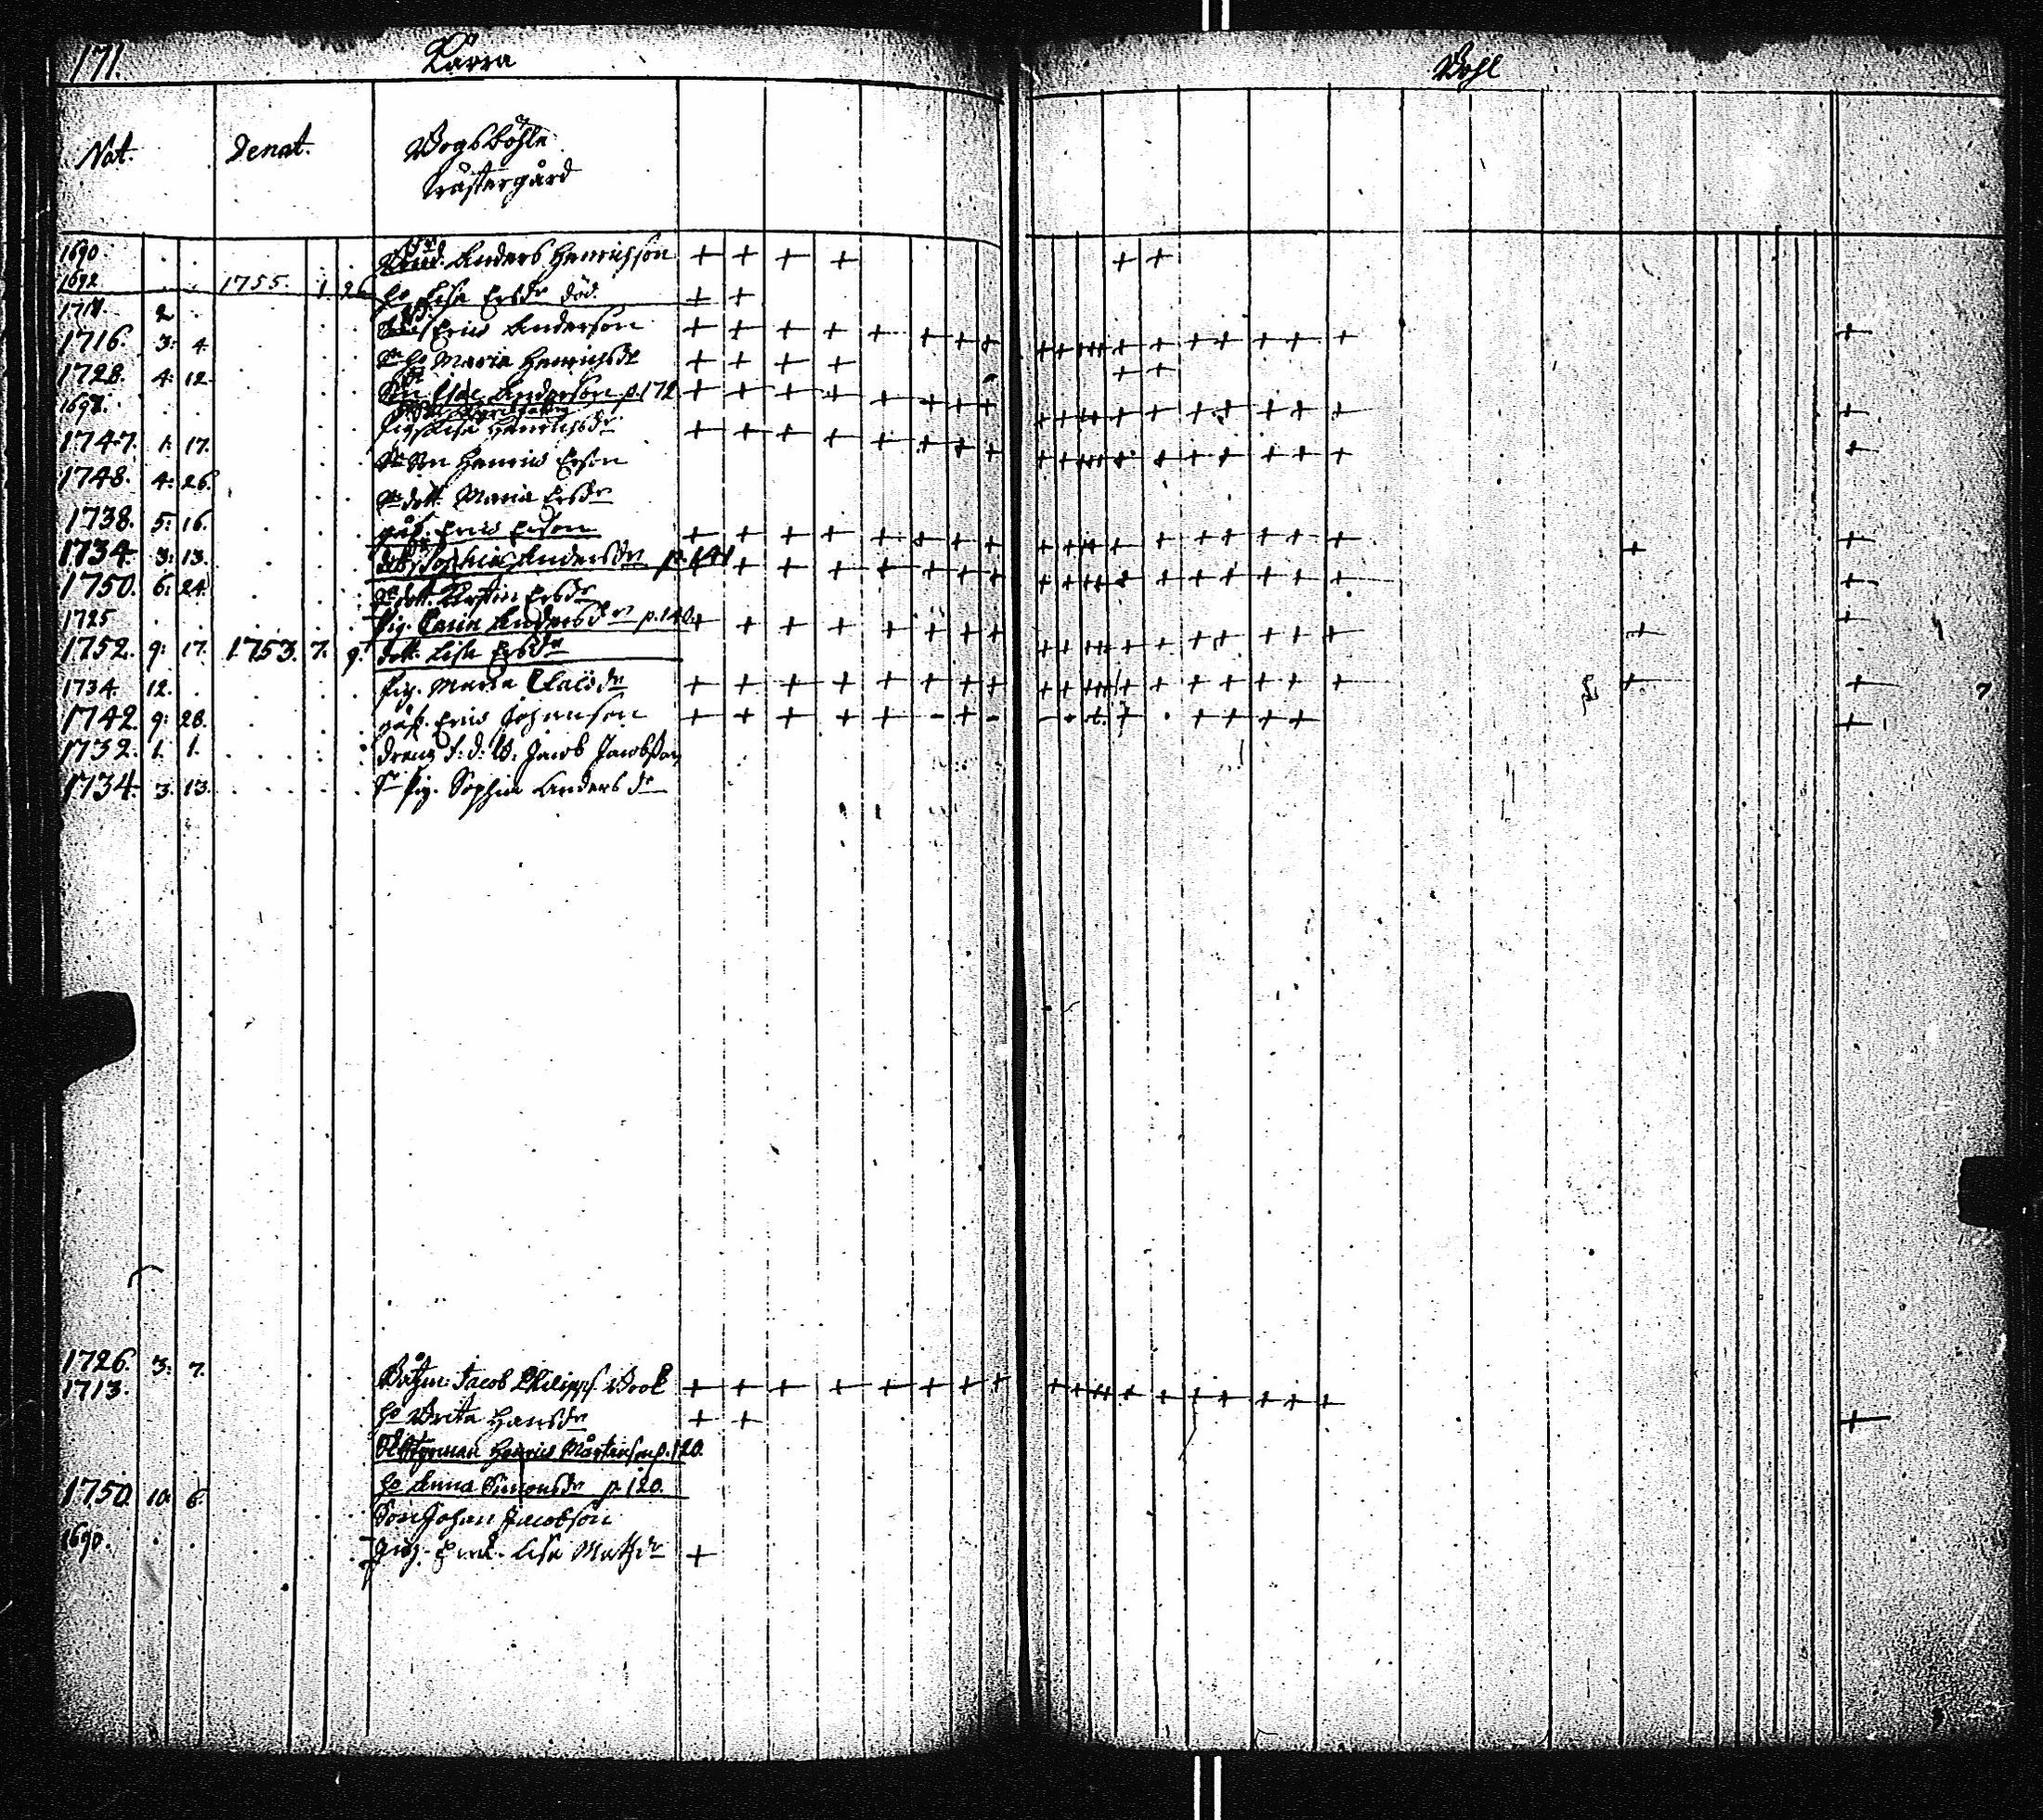 171. Kårra Bohl
Nat. Denat. Bogsböhle
wästergård
1690. Anders Henrichsson
1692. 1755. 1. 26. h:o Lisa Ersdr död.
1711. 2 Eric Anderson
1716. 3: 4. h:o Maria Henrichsdr
1728. 4: 12. Anderson p. 172
169 Lisa Henrichsdr
1747. 1: 17. Son Henric Erson
1748. 4: 26. dott. Maria Ersdr
1738. 5: 16. Eric Erson
1734. 3: 13. dott. Sophia Andersdr p. 141
1750. 6: 24. dott. Kirstin Ersdr
1725 Pig. Carin Andersdr p. 140.
1752. 9: 17. 1753. 7. 9. dott. Lisa Ersdr
1734. 12. Pig. Maria Clalsdr
1742. 9: 28. Eric Johanson
1732. 1. 1. dreng Jacob Jacobson
1734. 3. 13. Pig. Sophia Anders dr
1726. 3: 7. Båtzm. Jacob Philipps. Book
1713. h:o Brita Hansdr
Henric Mårtenson p. 120.
h:o Anna Simonsdr p 120.
1750. 10. 6. Son Johan Jacobson
1690. Lisa Matzdr